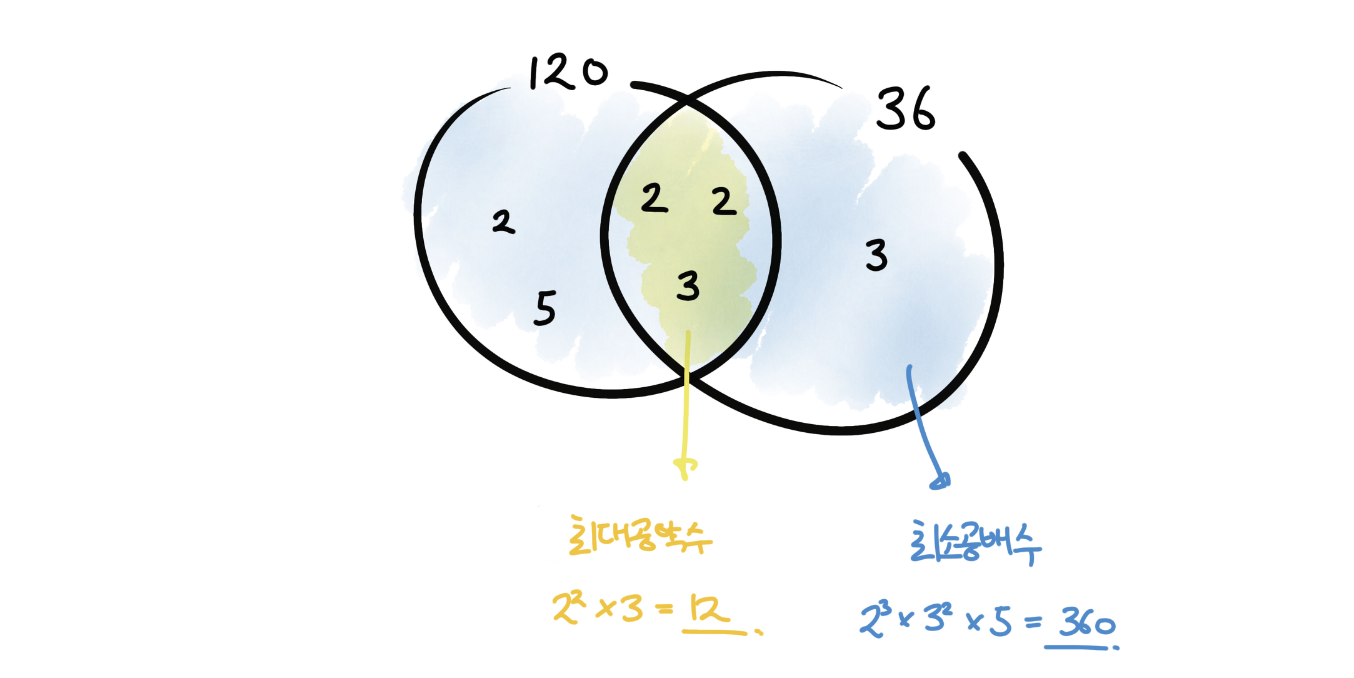 120
36
2
2 2
3
5
3
최대공약수
2² × 3 = 12.
최소공배수
2³ × 3² × 5 = 360.